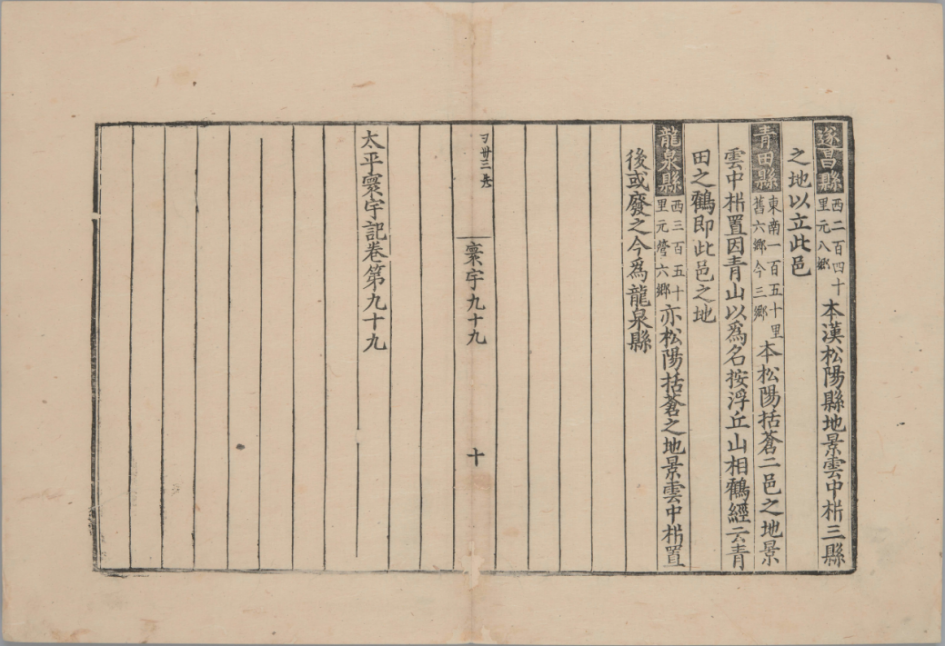 遂昌縣西二百四十里元八鄉本漢松陽縣地景雲中析三縣
之地以立此邑
青田縣東南一百五十里舊六鄉今三鄉本松陽括蒼二邑之地景
雲中析置因青山以爲名按浮丘山相鶴經云青
田之鶴即此邑之地
龍泉縣西三百五十里元營六鄉亦松陽括蒼之地景雲中析置
後或廢之今爲龍泉縣
寰宇九十九
十
太平寰宇記卷第九十九